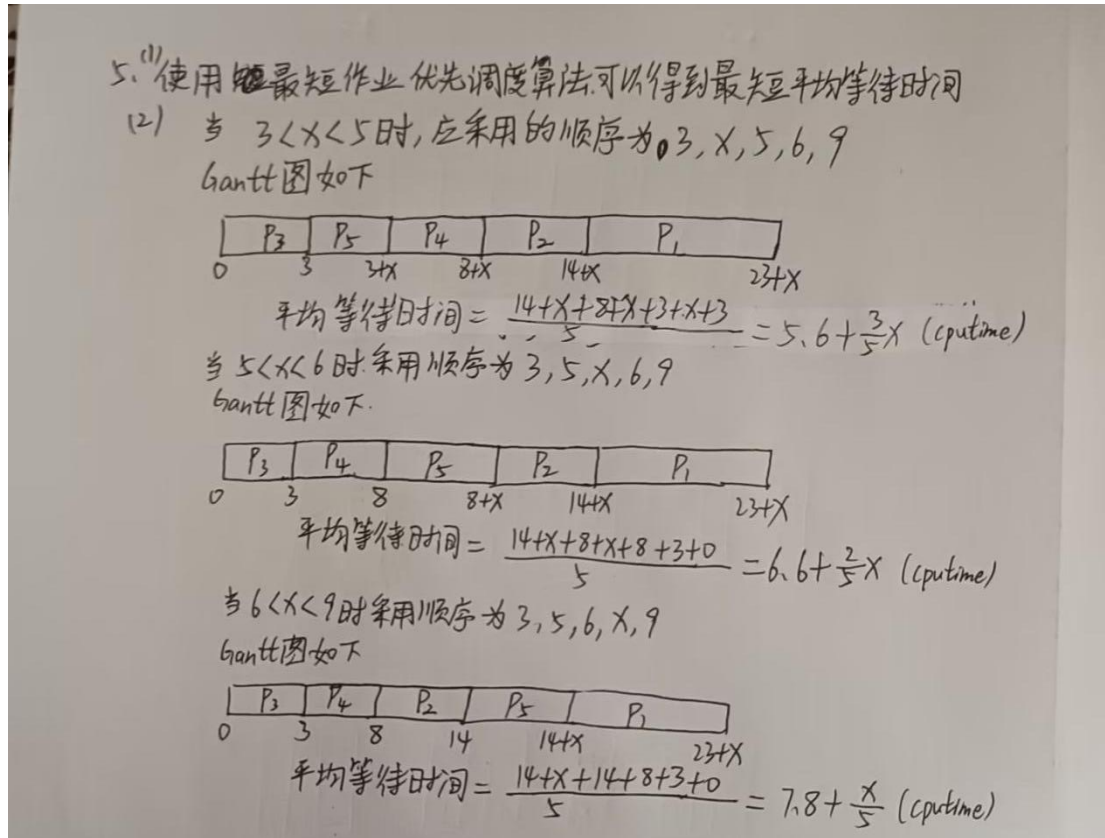 5.(1)使用最短作业优先调度算法.可以得到最短平均等待时间
(2) 当 3<x<5时,应采用的顺序为 3,x,5,6,9
Gantt图如下
P3 P5 P4 P2 P1
0 3 3+x 8+x 14+x 23+x
平均等待时间= (14+x+8+x+3+x+3)/5 =5.6+3/5x (cputime)
当 5<x<6时.采用顺序为 3,5,x,6,9
Gantt图如下.
P3 P4 P5 P2 P1
0 3 8 8+x 14+x 23+x
平均等待时间= (14+x+8+x+8+3+0)/5 =6.6+2/5x (cputime)
当 6<x<9时采用顺序为 3,5,6,x,9
Gantt图如下
P3 P4 P2 P5 P1
0 3 8 14 14+x 23+x
平均等待时间= (14+x+14+8+3+0)/5 = 7.8+x/5 (cputime)